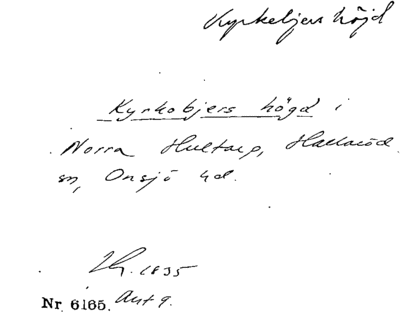 Kyrkebjers höjd
Kyrkobjers högd i
Norra Hultarp, Hallaröd
sn, Onsjö hd.
1835
Nr 6165. Ant 9.